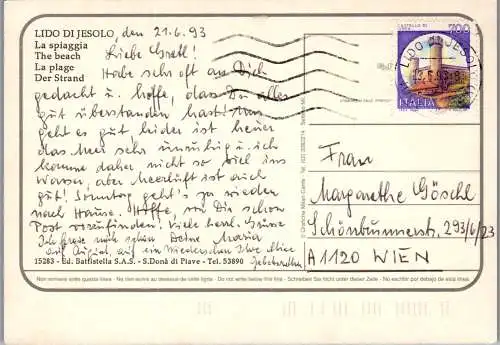 LIDO DI JESOLO, den 21.6.93
La spiaggia
The beach
La plage
Der Strand
Liebe Gretl!
Habe sehr oft an Dich
gedacht u. hoffe, das Du alles
gut überstanden hast! Uns
geht es gut, leider ist heuer
das Meer sehr unruhig u. ich
komme daher, nicht so viel ins
Wasser, aber Meerluft ist auch
gut! Sonntag geht's ja wieder
nach Hause. Hoffe, von Dir schon
Post vorzufinden! Viele herzl. Grüsse
Ich freue mich schon Deine Maria
auf August, auf ein Wiedersehen Ihre
15283 - Ed. Battistella S.A.S. - S.Donà di Piave - Tel. 53890
Non scrivere sotto questa linea - Ne rien écrire au dessous de cette ligne - Do not write below this line - Schreiben Sie nicht unter dieser Zeile - No escribir por debajo de esta línea
CASTELLO DI
700
ITALIA
LIDO DI JESOLO
Frau
Margarethe Göschl
Schönbrunnerstr. 293/6/23
A 1120 WIEN